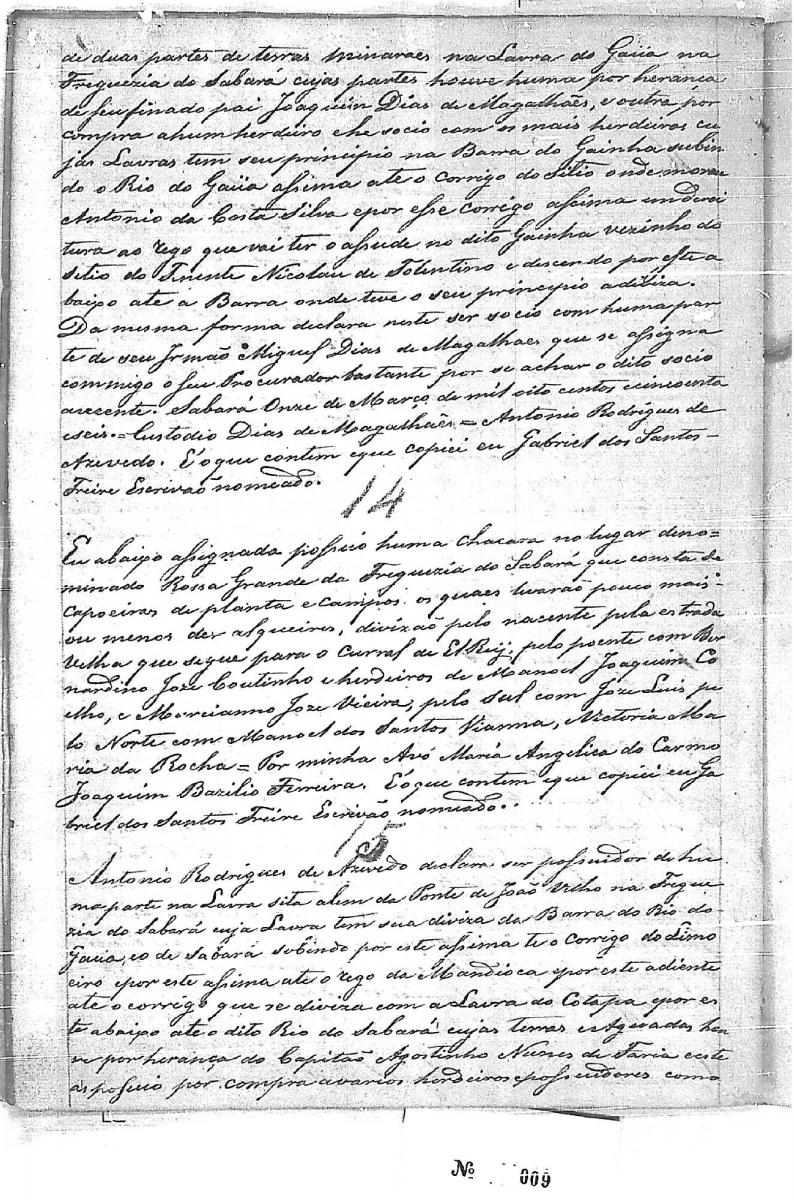 de duas partes de terras minaraes na Lavra do Gaiia na
Freguezia do Sabara cujas partes houve huma por heranca
de seu finado pai Joaquim Dias de Magalhães, e outra por
compra ahum herdeiro e he socio com os mais herdeiros cu
jas Lavras tem seu principio na Barra do Gainha subin
do o Rio do Gaiia assima ate o corrigo do sitio onde mora
Antonio da Costa Silva e por esse corrigo assima
tura ao rego que vai ter o assude no dito Gainha vezinho do
sitio do Tenente Nicolau de Tolentino e descendo por este a
baixo até a Barra onde teve o seu principio a diviza.
Da mesma forma declara neste ser socio com huma par
te de seu Irmão Miguel Dias de Magalhaes que se assigna
commigo o seu Procurador bastante por se achar o dito socio
auzente. Sabará Onze de Março de mil oito centos e cincoenta
e seis. = Custodio Dias de Magalhães = Antonio Rodrigues de
Azevedo. É o que contem e que copiei eu Gabriel dos Santos-
Freire Escrivaõ nomeado.
14
Eu abaixo assignada possuo huma chacara no lugar deno=
minado Rossa Grande da Freguezia do Sabará que consta de
capoeiras de planta e campos os quaes levarão pouco mais
ou menos des alqueires, divizão pelo nacente pela estrada
velha que segue para o Curral de El Rey, pelo poente com Ber
nardino Joze Coutinho e herdeiros de Manoel Joaquim Co
elho, e Marcianno Joze Vieira, pelo sul com Joze Luis pe
lo Norte com Manoel dos Santos Vianna, e Victoria Ma
ria da Rocha = Por minha Avó Maria Angelica do Carmo
Joaquim Bazilio Ferreira. É o que contem e que copiei eu Ga
briel dos Santos Freire Escrivaõ nomeado.
15
Antonio Rodrigues de Azevedo declara ser possuidor de hu
ma parte na Lavra sita alem da Ponte de João Velho na Fregue
zia do Sabará cuja Lavra tem sua diviza da Barra do Rio do
Gaiia, e o de Sabará subindo por este assima te o corrigo do Limo
eiro e por este assima até o rego da Mandioca e por este adiente
até o corrigo que se diviza com a Lavra do Cotapa e por es
te abaixo até o dito Rio do Sabará cujas terras e Agoadas hou
ve por herança do Capitaõ Agostinho Nunes de Faria e este
as possuio por compra avarios herdeiros e possuidores como
Nº 009